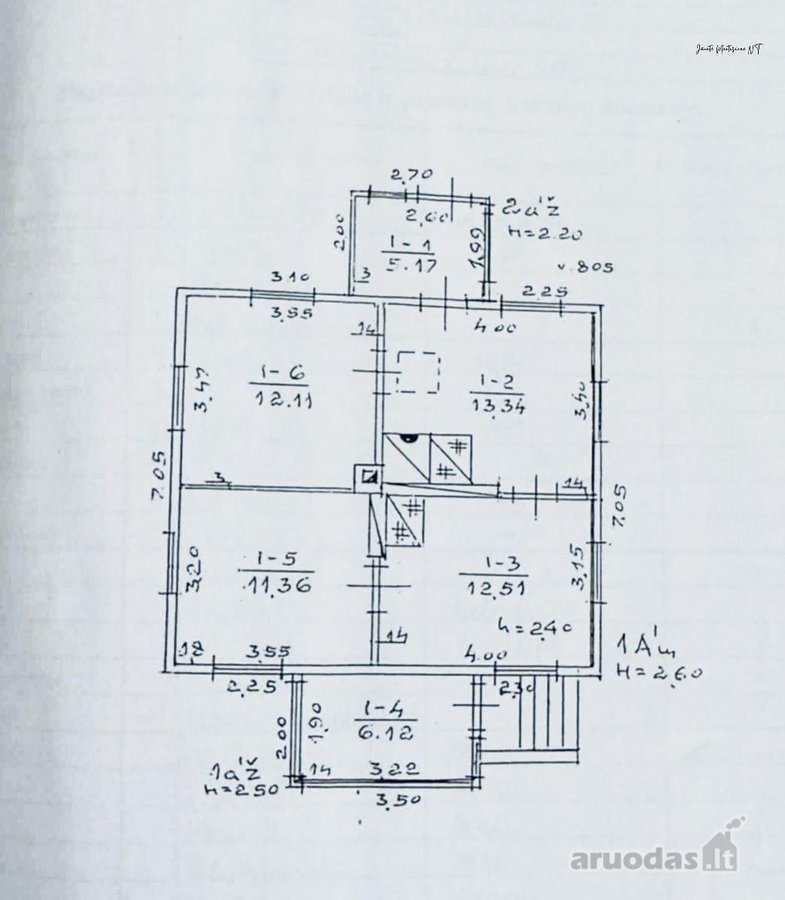 2.70
2.60
2.00
1-1
5.17
1.99
3
2a'ž
H=2.20
v. 805
3.10
3.55
2.25
4.00
14
1-6
12.11
3.47
1-2
13.34
3.40
3
14
7.05
7.05
1-5
11.36
3.20
1-3
12.51
3.15
h=2.40
18
3.55
14
4.00
2.25
2.30
H=2.60
1-4
6.12
2.00
1.90
1a'ž
H=2.50
14
3.22
3.50
aruodas.lt